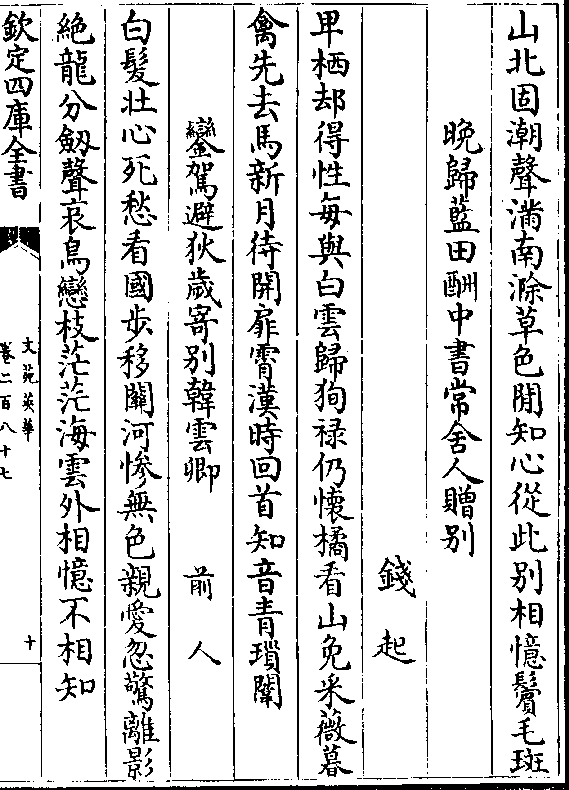 山北固潮聲滿南滁草色閒知心從此别相憶鬢毛斑
晚歸藍田酬中書常舍人贈别
錢起
卑栖却得性每與白雲歸狥禄仍懷橘看山免采薇暮
禽先去馬新月待開扉霄漢時回首知音青瑣闈
鑾駕避狄歲寄别韓雲卿　前人
白髮壯心死愁看國步移關河惨無色親愛忽驚離影
絶龍分劒聲哀鳥戀枝茫茫海雲外相憶不相知
欽定四庫全書
文苑英華
卷二百八十七
十